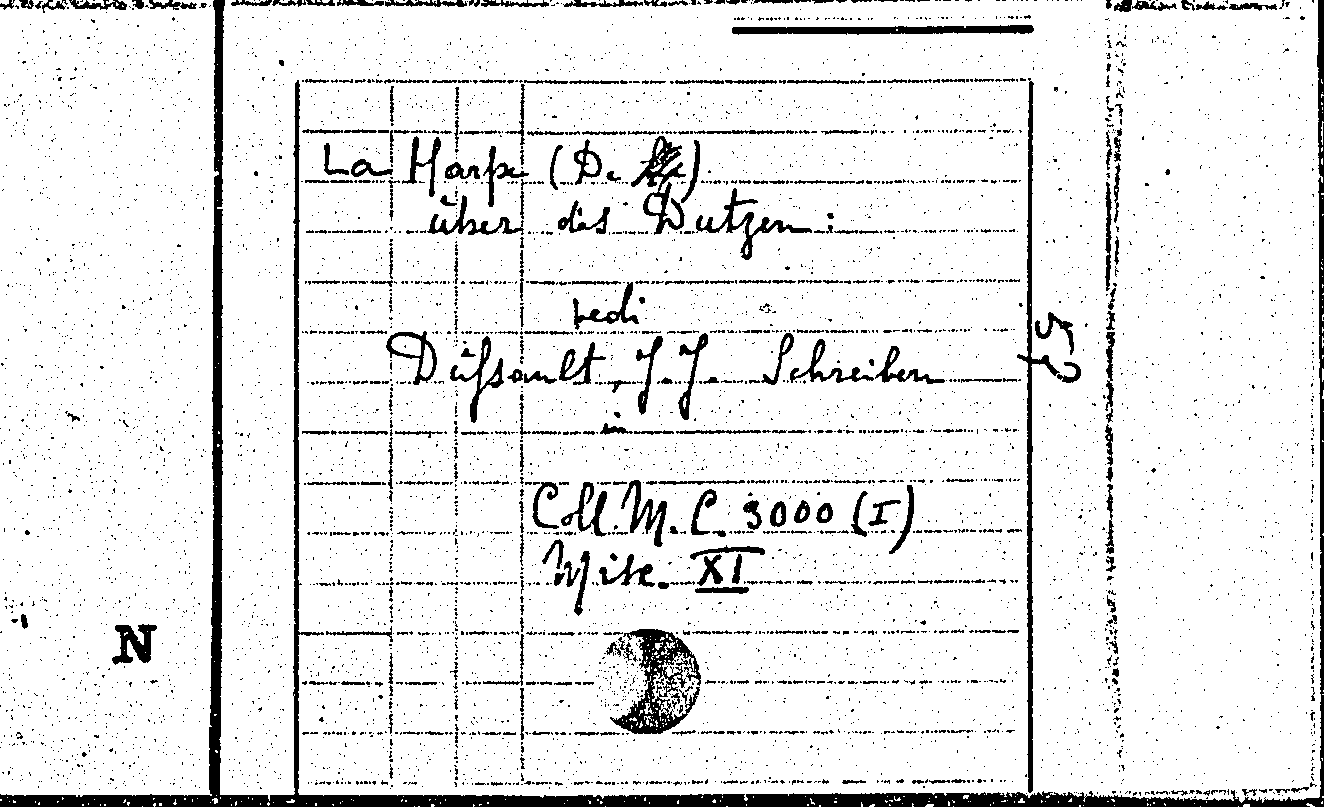 La Harpe (De
über das Dutzen:
vedi
Dussault, J. J. Schreiben
in
Coll. M. C. 3000 (I)
Misc. XI
N